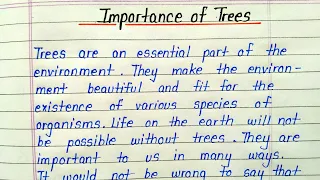 Importance of Trees
Trees are an essential part of the
environment. They make the environ-
ment beautiful and fit for the
existence of various species of
organisms. Life on the earth will not
be possible without trees. They are
important to us in many ways.
It would not be wrong to say that